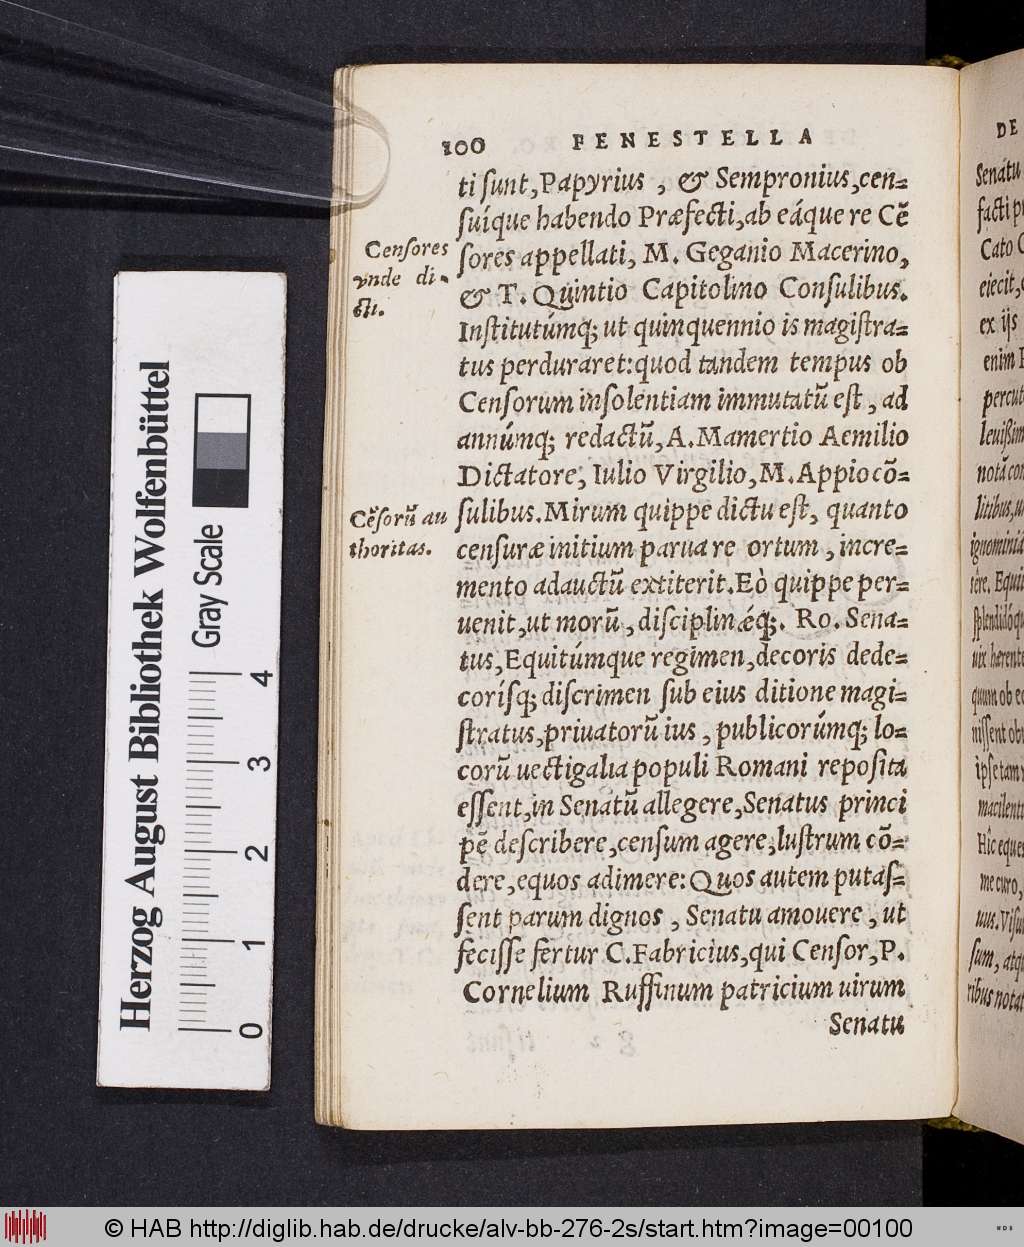 100 FENESTELLA
ti sunt, Papyrius, & Sempronius, cen=
suíque habendo Præfecti, ab eáque re Cẽ
sores appellati, M. Geganio Macerino,
& T. Quintio Capitolino Consulibus.
Institutúmq; ut quinquennio is magistra=
tus perduraret: quod tandem tempus ob
Censorum insolentiam immutatũ est, ad
annúmq; redactũ, A. Mamertio Aemilio
Dictatore, Iulio Virgilio, M. Appio cõ=
sulibus. Mirum quippe dictu est, quanto
censuræ initium parua re ortum, incre=
mento adauctũ extiterit. Eò quippe per=
uenit, ut morũ, disciplinǽq;. Ro. Sena=
tus, Equitúmque regimen, decoris dede=
corisq; discrimen sub eius ditione magi=
stratus, priuatorũ ius, publicorúmq; lo=
corũ uectigalia populi Romani reposita
essent, in Senatũ allegere, Senatus princi
pẽ describere, censum agere, lustrum cõ=
dere, equos adimere: Quos autem putas=
sent parum dignos, Senatu amouere, ut
fecisse fertur C. Fabricius, qui Censor, P.
Cornelium Ruffinum patricium uirum
Senatu
Censores
vnde di=
cti.
Cẽsorũ au
thoritas.
DE
Senatu
facti p
Cato C
eiecit,
ex ijs
enim
percut
leuißim
Herzog August Bibliothek Wolfenbüttel
Gray Scale
0 1 2 3 4
© HAB http://diglib.hab.de/drucke/alv-bb-276-2s/start.htm?image=00100